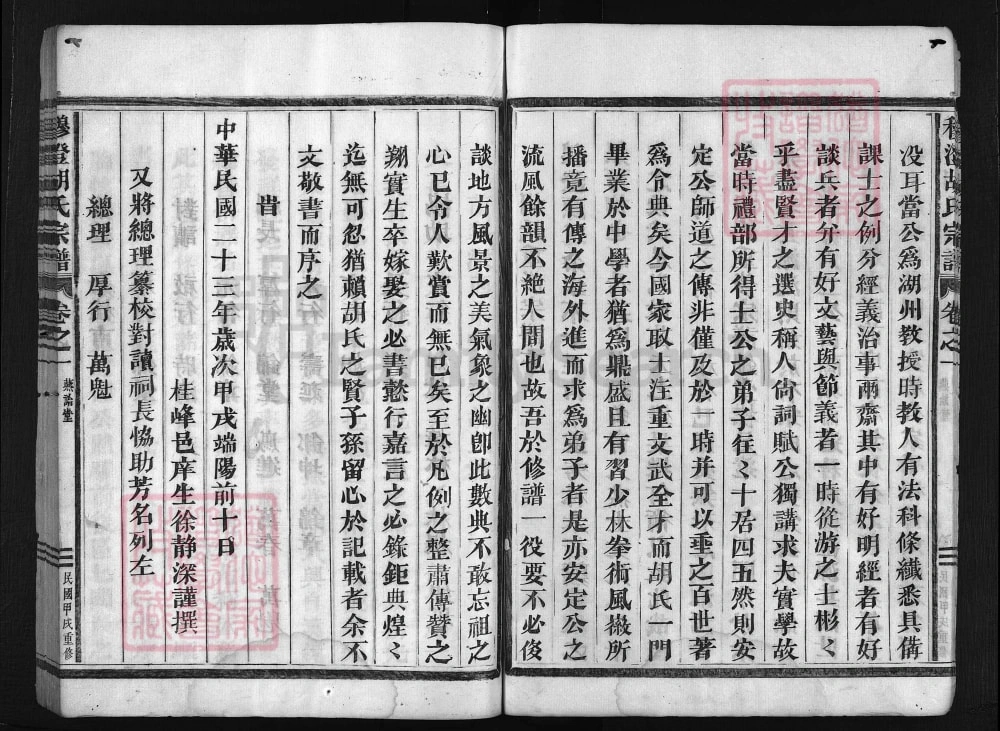 穆澄胡氏宗譜 卷之一 燕詒堂 民國甲戌重修
没耳當公爲湖州教授時教人有法科條纖悉具備
課士之例分經義治事兩齋其中有好明經者有好
談兵者分有好文藝與節義者一時從游之士彬〻
乎盡賢才之選史稱人尙詞賦公獨講求夫實學故
當時禮部所得士公之弟子往〻十居四五然則安
定公師道之傳非僅及於一時并可以垂之百世著
爲令典矣今國家取士注重文武全才而胡氏一門
畢業於中學者猶爲鼎盛且有習少林拳術風撥所
播竟有傳之海外進而求爲弟子者是亦安定公之
流風餘韻不絶人間也故吾於修譜一役要不必侈
談地方風景之美氣象之幽卽此數典不敢忘祖之
心已令人歎賞而無已矣至於凡例之整肅傳贊之
翔實生卒嫁娶之必書懿行嘉言之必錄鉅典煌〻
迄無可忽猶賴胡氏之賢子孫留心於記載者余不
文敬書而序之
旹
中華民國二十三年歲次甲戌端陽前十日
桂峰邑庠生徐静深謹撰
又將總理纂校對讀祠長恊助芳名列左
總理 厚行 萬尠
穆澄胡氏宗譜 卷之一 燕詒堂 民國甲戌重修